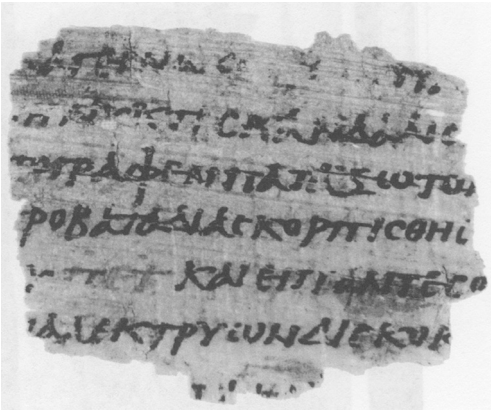 ΝΥΚΤΙ ϹΚΑΝΔΑΛΙϹ
ΤΟ ΓΡΑΦΕΝ ΠΑΤΑΞΩ ΤΟΝ
ΡΟΒΑΤΑ ΔΙΑϹΚΟΡΠΙϹΘΗϹ
ΠΕΤ ΚΑΙ ΕΙ ΠΑΝΤΕϹ Ο
ΑΛΕΚΤΡΥΩΝ ΔΙϹ ΚΟΚ